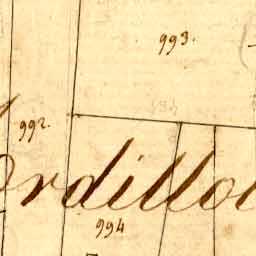 993.
992.
rdillo
994